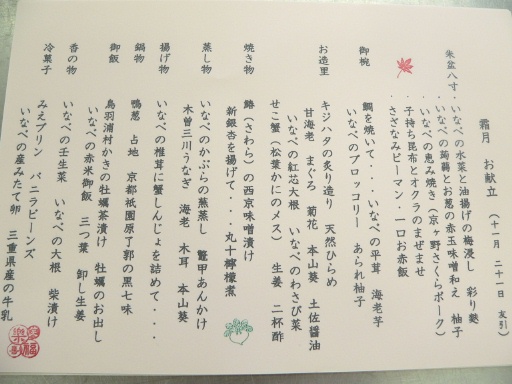 霜月　お献立　（十一月　二十一日　友引）
朱盆八寸・いなべの水菜と油揚げの梅浸し　彩り麩
・いなべの蒟蒻とお葱の赤玉味噌和え　柚子
・いなべの恵み焼き（京ヶ野さくらポーク）
・子持ち昆布とオクラのまぜまぜ
・さざなみピーマン・一口お赤飯
御椀　鯛を焼いて・・・いなべの平茸　海老芋
いなべのブロッコリー　あられ柚子
お造里　キジハタの炙り造り　天然ひらめ
甘海老　まぐろ　菊花　本山葵　土佐醤油
いなべの紅芯大根　いなべのわさび菜
せこ蟹（松葉かにのメス）　生姜　二杯酢
焼き物　鰆（さわら）の西京味噌漬け
新銀杏を揚げて・・・丸十檸檬煮
蒸し物　いなべのかぶらの蕪蒸し　鼈甲あんかけ
木曽三川うなぎ　海老　木耳　本山葵
揚げ物　いなべの椎茸に蟹しんじょを詰めて・・・
鍋物　鴨葱　占地　京都祇園原了郭の黒七味
御飯　鳥羽浦村かきの牡蠣茶漬け　牡蠣のお出し
いなべの赤米御飯　三つ葉　卸し生姜
香の物　いなべの壬生菜　いなべの大根　柴漬け
冷菓子　みえプリン　バニラビーンズ
いなべの産みたて卵　三重県産の牛乳